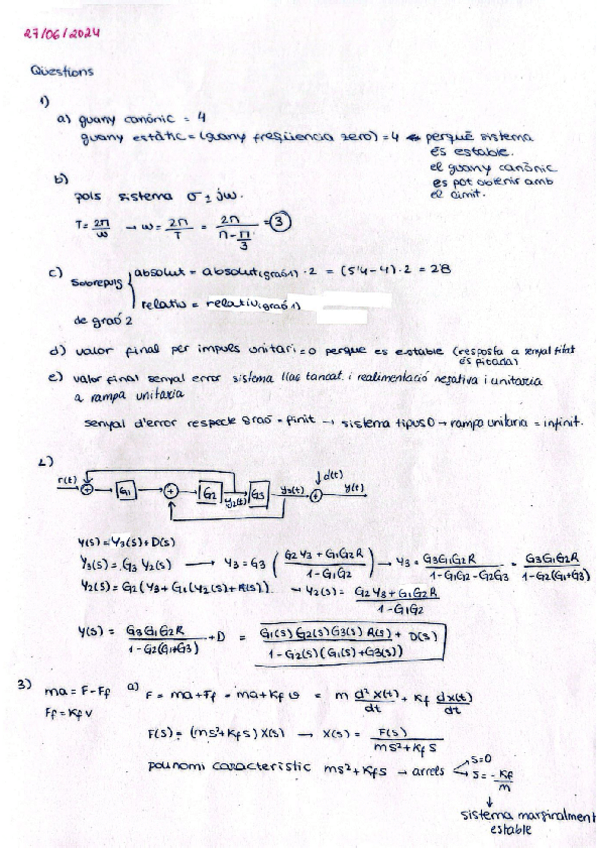 27/06/2024
Qüestions
1)
a) guany canònic = 4
guany estàtic = (guany freqüència zero) = 4 ← perquè sistema
és estable.
el guany canònic
es pot obtenir amb
el límit.
b)
pols sistema σ ± jω.
T = 2π/ω → ω = 2π/T = 2π/(π - π/3) = 3
c) Sobrepuig { absolut = absolut(graó 1) · 2 = (5'4-4) · 2 = 2'8
relatiu = relatiu(graó 1)
de graó 2
d) valor final per impuls unitari = 0 perquè es estable (resposta a senyal finit
és fitada)
e) valor final senyal error sistema llaç tancat i realimentació negativa i unitaria
a rampa unitaria
senyal d'error respecte graó = finit → sistema tipus 0 → rampa unitaria = infinit.
2)
r(t) + G1 + G2 y2(t) G3 y3(t) + d(t) y(t)
Y(s) = Y3(s) + D(s)
Y3(s) = G3 Y2(s) → Y3 = G3 ( (G2Y3 + G1G2R) / (1-G1G2) ) → Y3 = G3G1G2R / (1-G1G2-G2G3) = G3G1G2R / (1-G2(G1+G3))
Y2(s) = G2(Y3 + G1(Y2(s) + R(s))) → Y2(s) = (G2Y3 + G1G2R) / (1-G1G2)
Y(s) = G3G1G2R / (1-G2(G1+G3)) + D = G1(s)G2(s)G3(s)R(s) / (1-G2(s)(G1(s)+G3(s))) + D(s)
3) ma = F - Ff a) F = ma + Ff = ma + Kf v = m d²x(t)/dt + Kf dx(t)/dt
Ff = Kf v
F(s) = (ms² + Kf s) X(s) → X(s) = F(s) / (ms² + Kf s)
polinomi característic ms² + Kf s → arrels s=0
s = -Kf/m
↓
sistema marginalment
estable